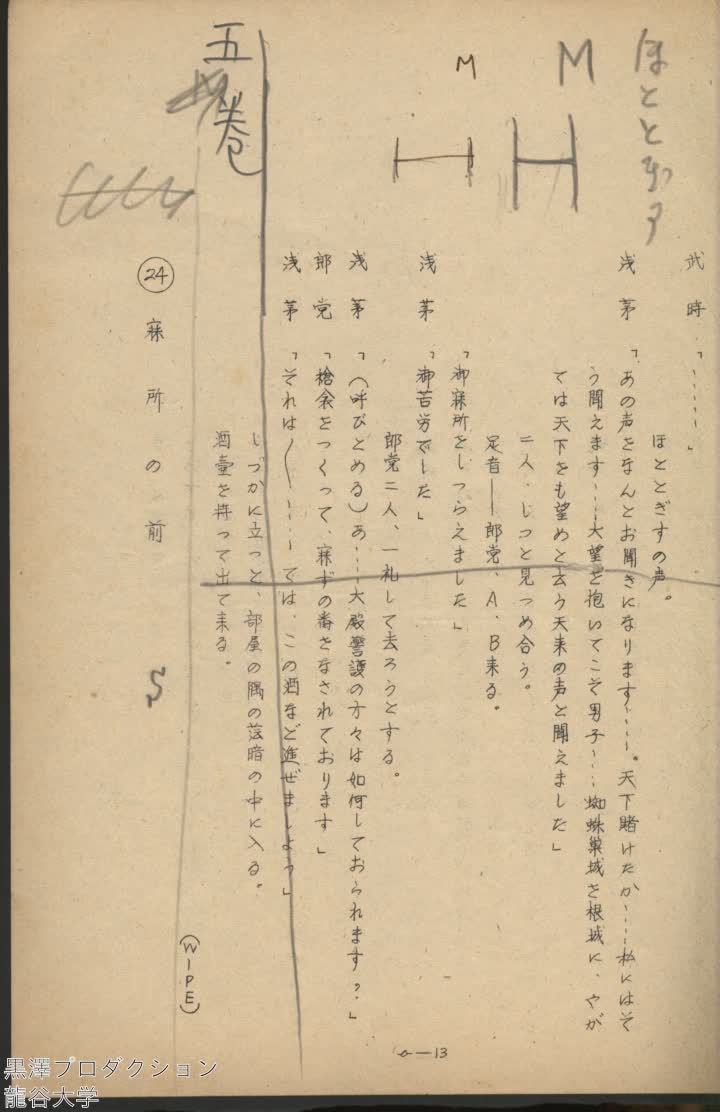 ほととぎす
M
M
H
H
五巻
武時「……」
ほととぎすの声。
浅茅「あの声をなんとお聞きになります……。天下賭けたか……私にはそ
う聞えます……大望を抱いてこそ男子……蜘蛛巣城を根城に、やが
ては天下をも望めと云う天来の声と聞えました」
二人、じっと見つめ合う。
足音――郎党、A、B来る。
「御寐所をしつらえました」
浅茅「御苦労でした」
郎党二人、一礼して去ろうとする。
浅茅「(呼びとめる)あ……大殿警護の方々は如何しておられます?」
郎党「槍衾をつくって、寐ずの番をなされております」
浅茅「それは〱……では、この酒など進ぜましょう」
しづかに立つと、部屋の隅の薄暗の中に入る。
酒壷を持って出て来る。
(WIPE)
㉔ 寐所の前
S
a―13
黒澤プロダクション
龍谷大学